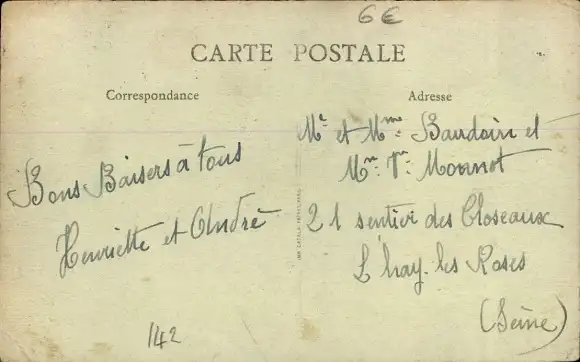 6€
CARTE POSTALE
Correspondance
Adresse
Bons Baisers à tous
Henriette et André
142
Mr et Mme Baudoin et
Mme Vve Monnot
21 sentier des Closeaux
L'hay. les Roses
(Seine)